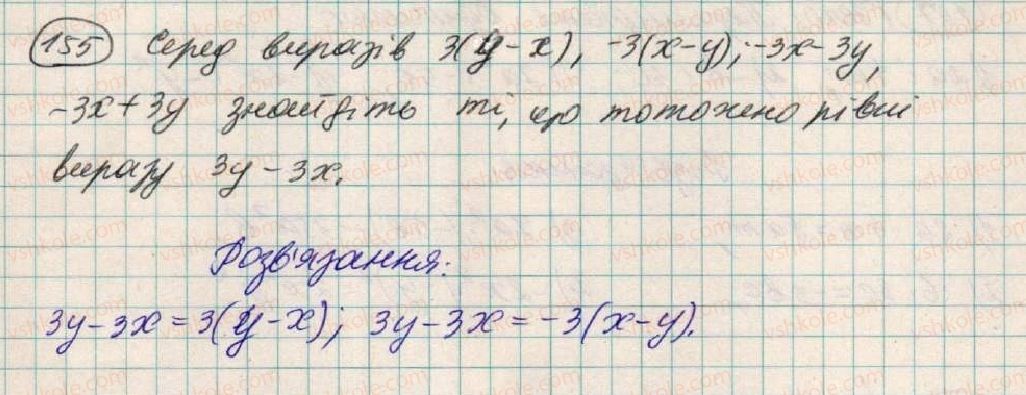 155 Серед виразів 3(y-x), -3(x-y); -3x-3y,
-3x+3y знайдіть ті, що тотожно рівні
виразу 3y-3x.
Розв'язання:
3y-3x=3(y-x); 3y-3x=-3(x-y).